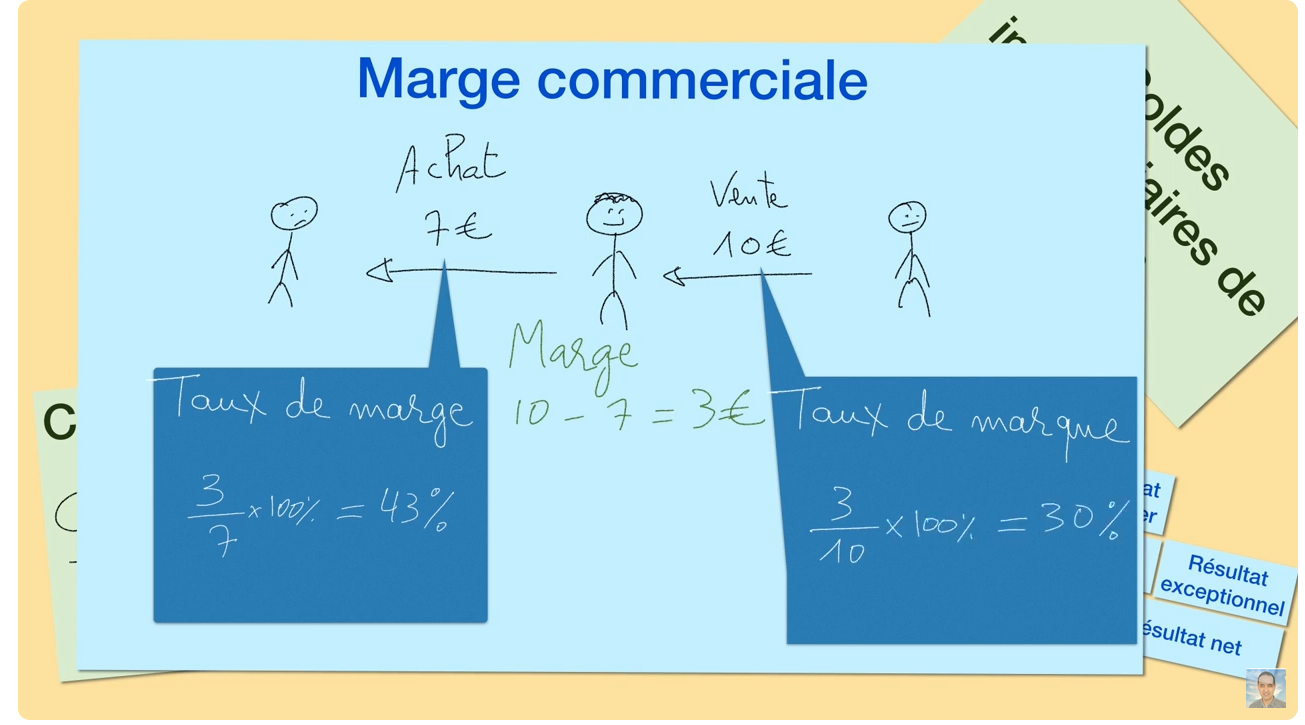 Marge commerciale
Achat
7€
Vente
10€
Marge
10 - 7 = 3€
Taux de marge
3/7 × 100% = 43%
Taux de marque
3/10 × 100% = 30%
oldes
aires de
C
at
er
Résultat
exceptionnel
ésultat net